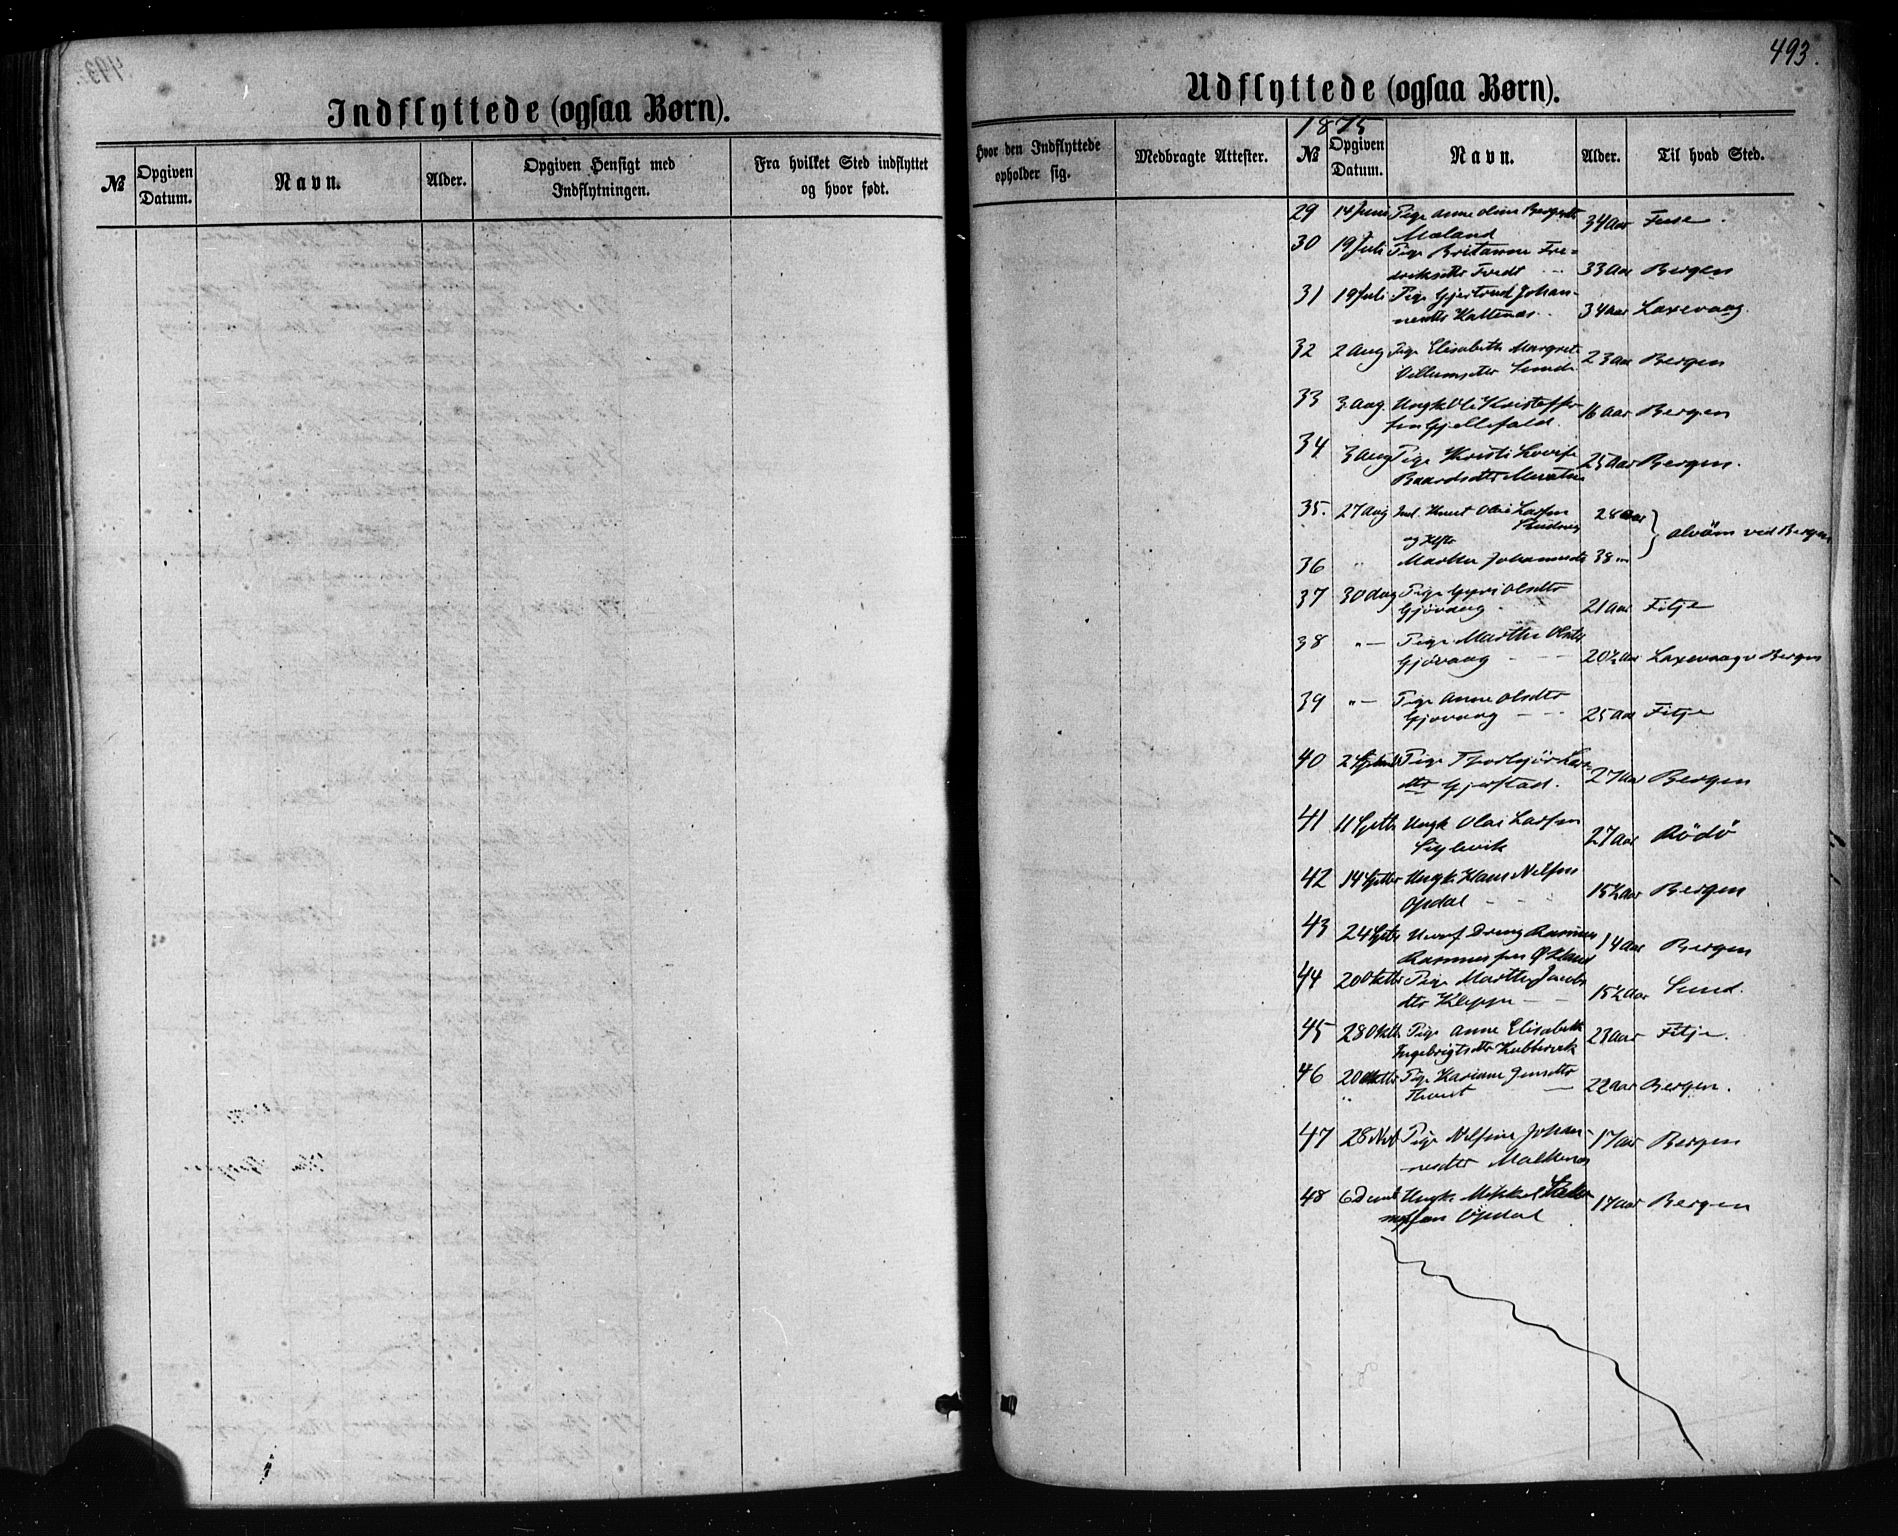 493.
Indflyttede (ogsaa Børn).
Udflyttede (ogsaa Børn).
1875
№ Opgiven Datum. Navn. Alder. Opgiven Hensigt med Indflytningen. Fra hvilket Sted indflyttet og hvor født.
Hvor den Indflyttede opholder sig. Medbragte Attester. № Opgiven Datum. Navn. Alder. Til hvad Sted.
29 14 Juni Pige Anne Oline
Mæland 34 Aar Fuse.
30 19 Juli Pige Britanne Fre-
driksdtr Tvedt 33 Aar Bergen
31 19 Juli Pige Gjertrud Johan-
nesdtr Kaltenæs. 34 Aar Laxevaag.
32 2 Aug Pige Elisabeth Margret
Villumsdtr Sund 23 Aar Bergen
33 3 Aug. Ungk Ole Kristoffer-
sen Gjellefald. 16 Aar Bergen
34 3 Aug Pige Kristi Lovise
Baardsdtr 25 Aar Bergen.
35. 27 Aug Ind. Knut Olai Larsen 28 Aar
og Hstr Alvøen ved Bergen
36 " Martha Johannesdtr 38 "
37 30 Aug Pige Guri Olsdtr
Gjøvaag 21 Aar Fitje
38 " — Pige Martha Olsdtr
Gjøvaag 20½ Aar Laxevaag v Bergen
39 " — Pige Anne Olsdtr
Gjøvaag 25 Aar Fitje
40 2 Septemb Pige Thorbjør Lars-
dtr Gjerstad. 27 Aar Bergen
41 11 Septb Ungk Olai Larsen
Siglevik 27 Aar Rödö
42 14 Septbr Ungk. Hans Nilsen
Opdal 15½ Aar Bergen
43 24 Septb Dreng Rasmus
Rasmussen Økland 14 Aar Bergen
44 20 Oktbr Pige Martha Jacobs
dtr Kleppe 15½ Aar Sund.
45 28 Oktb Pige Anne Elisabeth
Ingebrigtsdtr Hubbervik 23 Aar Fitje.
46 20 Oktbr Pige Kariane Jensdtr
" 22 Aar Bergen.
47 28 Nvb Pige Nilsine Johan-
nesdtr Malkenes 17 Aar Bergen
48 6 Decemb Ungk. Mikkel
Opdal 17 Aar Bergen